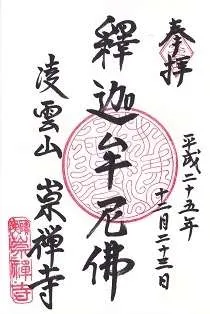 奉拝
平成二十五年
十二月二十三日
釋迦牟尼佛
凌雲山 崇禅寺